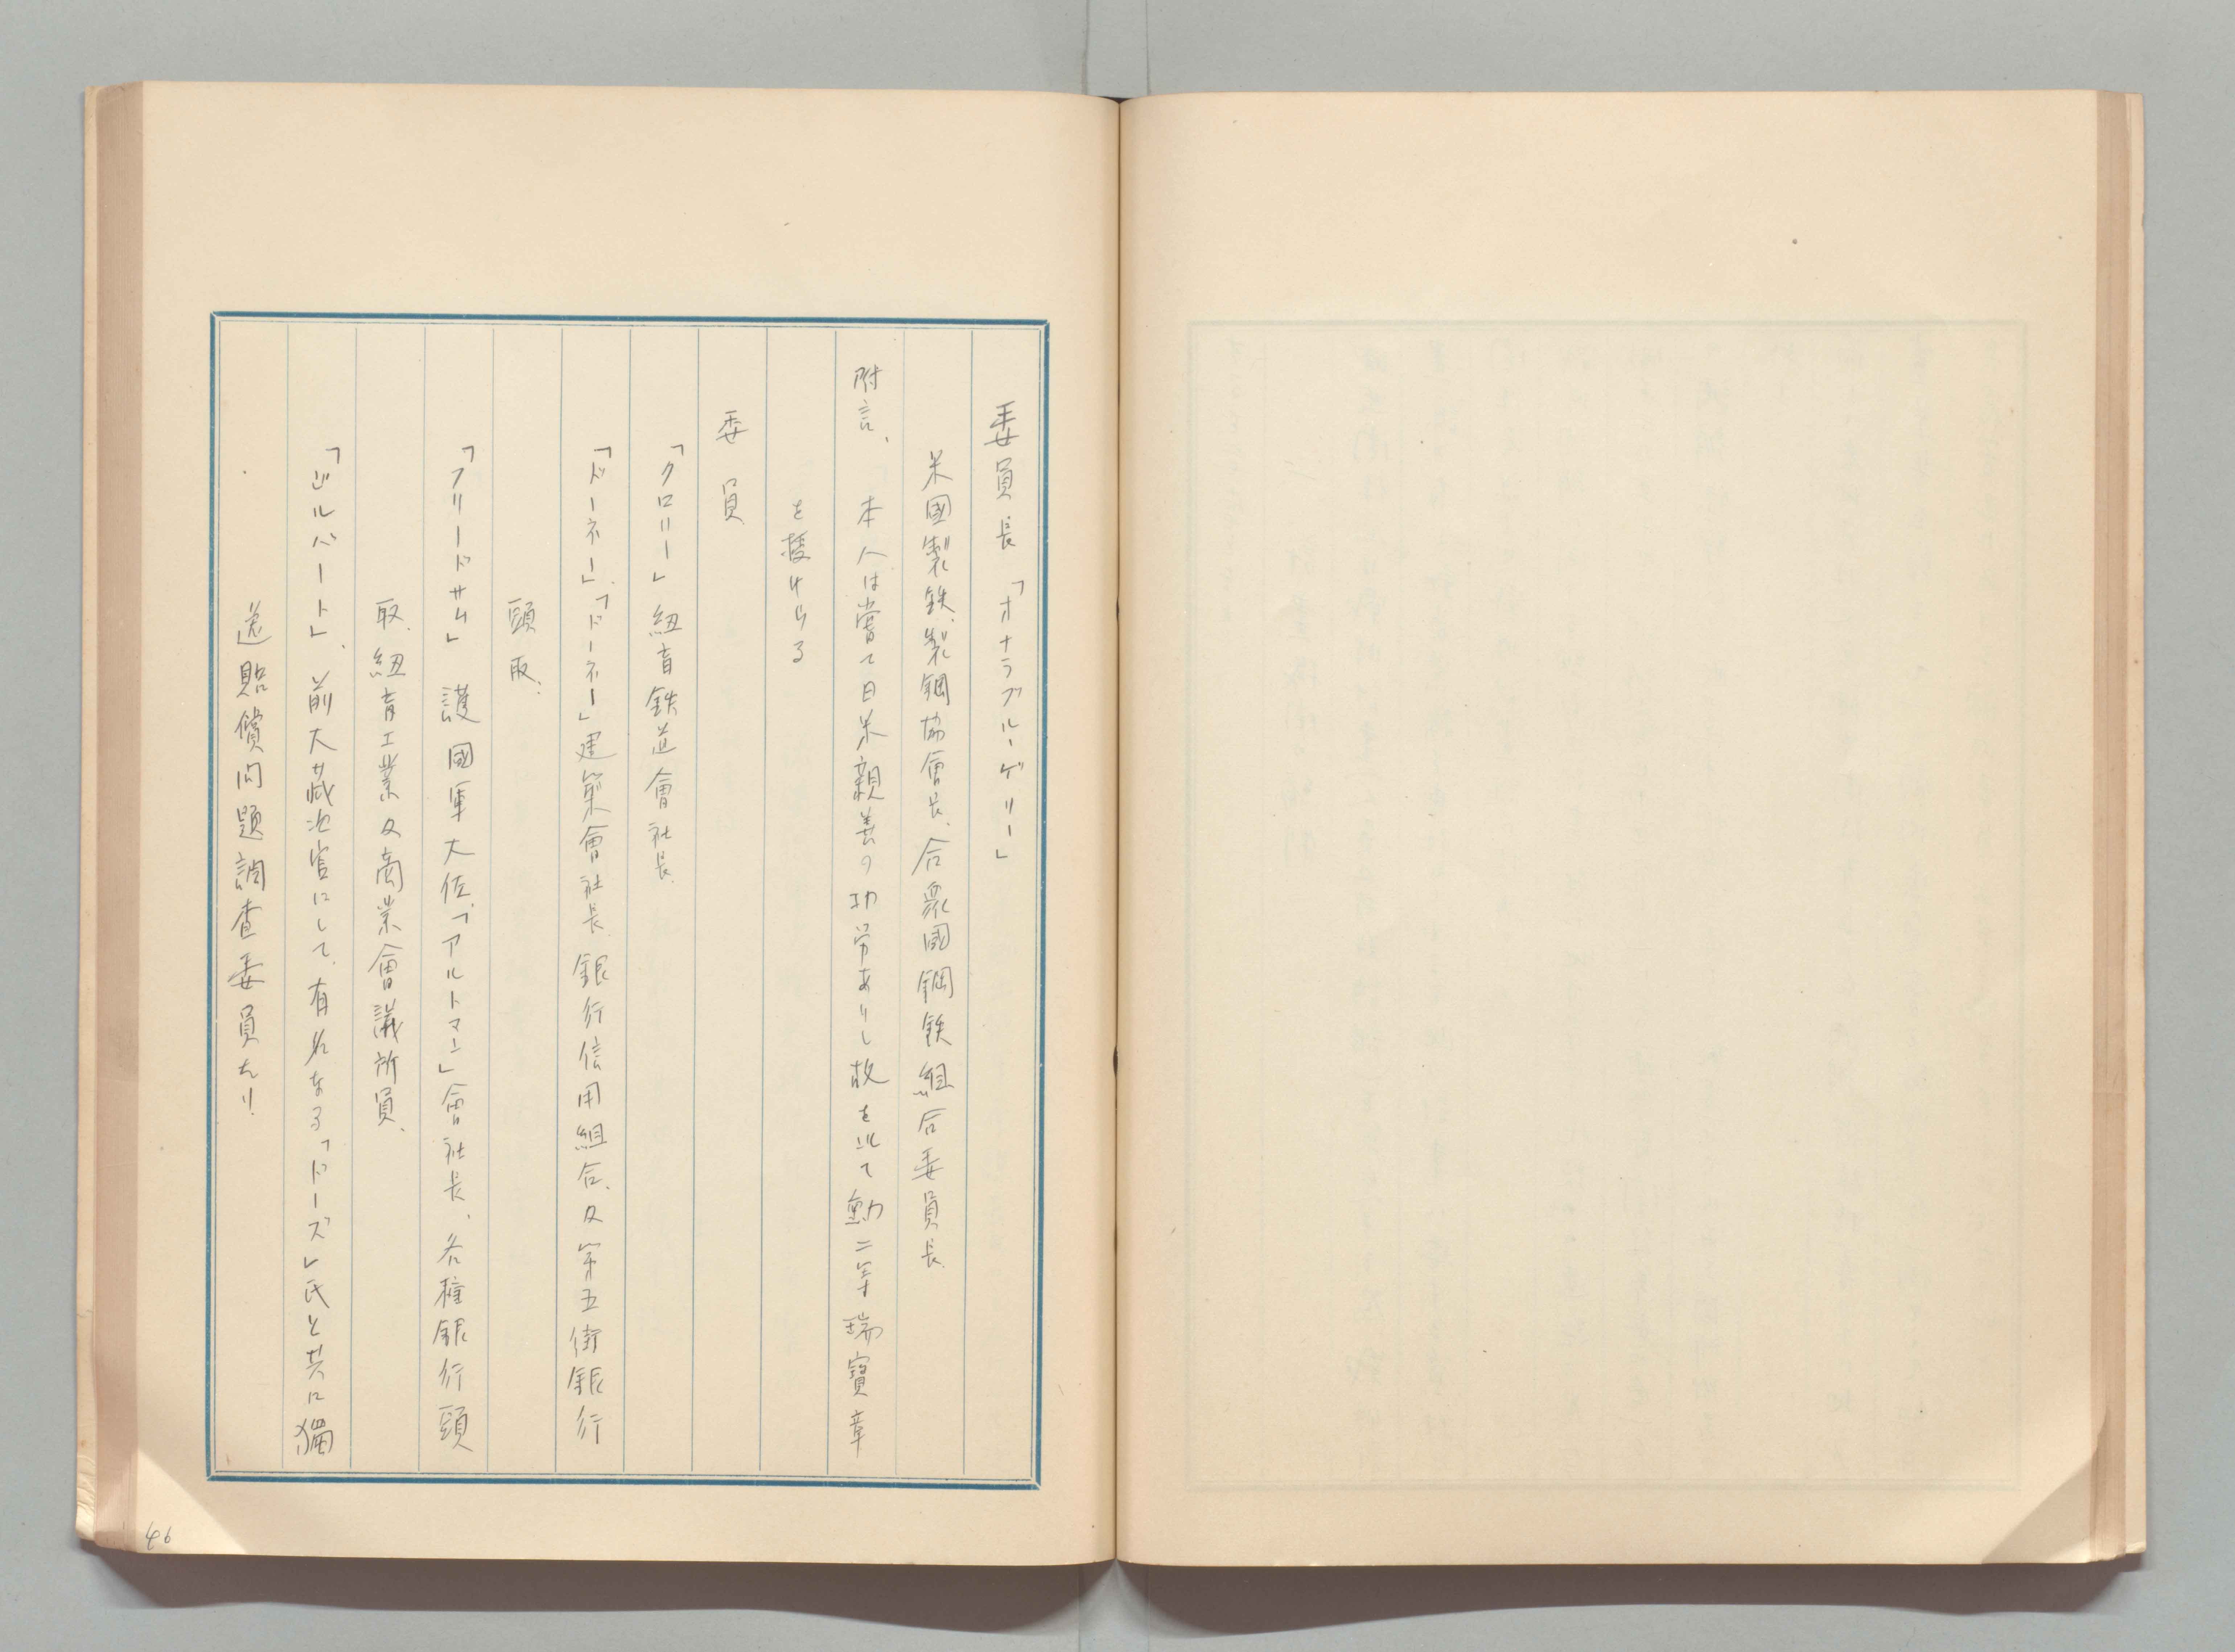 委員長「オナラブル、ゲリー」
米國製鉄、製鋼協會長、合衆國鋼鉄組合委員長
附言、本人は嘗て日米親善の功労ありし故を以て勲二等瑞寶章
を授けらる
委員
「クロリー」紐育鉄道會社長
「ドーネー」、「ドーネー」建築會社長、銀行信用組合、及第五街銀行
頭取、
「フリードサム」護國軍大佐、「アルトマン」會社長、各種銀行頭
取、紐育工業及商業會議所員、
「ジルバート」、前大蔵次官にして、有名なる「ドーズ」氏と共に獨
逸賠償問題調査委員たり、
46